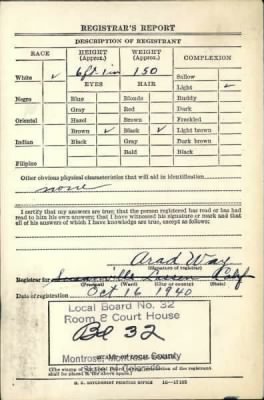 REGISTRAR'S REPORT
DESCRIPTION OF REGISTRANT
RACE HEIGHT (Approx.) WEIGHT (Approx.) COMPLEXION
White ✓ 6 ft 1 in 150 Sallow
EYES HAIR Light ✓
Negro Blue Blonde Ruddy
Gray Red Dark
Oriental Hazel Brown Freckled
Brown ✓ Black ✓ Light brown
Indian Black Gray Dark brown
Bald Black
Filipino
Other obvious physical characteristics that will aid in identification
none
I certify that my answers are true; that the person registered has read or has had
read to him his own answers; that I have witnessed his signature or mark and that
all of his answers of which I have knowledge are true, except as follows:
Arad Way
(Signature of registrar)
Registrar for Susanville Lassen Calif
(Precinct) (Ward) (City or county) (State)
Date of registration Oct 16 1940
Local Board No. 32
Room 2 Court House
Bd 32
Montrose, Montrose County
Colorado
U. S. GOVERNMENT PRINTING OFFICE 16—17105